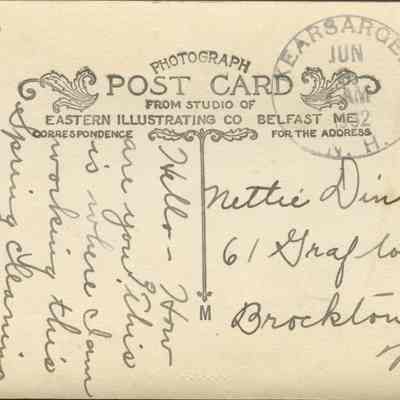 PHOTOGRAPH
POST CARD
FROM STUDIO OF
EASTERN ILLUSTRATING CO BELFAST ME
CORRESPONDENCE
FOR THE ADDRESS
KEARSARGE
JUN
AM
1932
N. H.
Hello - How
are you? This
is where I am
working this
Spring cleaning
Nettie Din
61 Grafto
Brockton
M